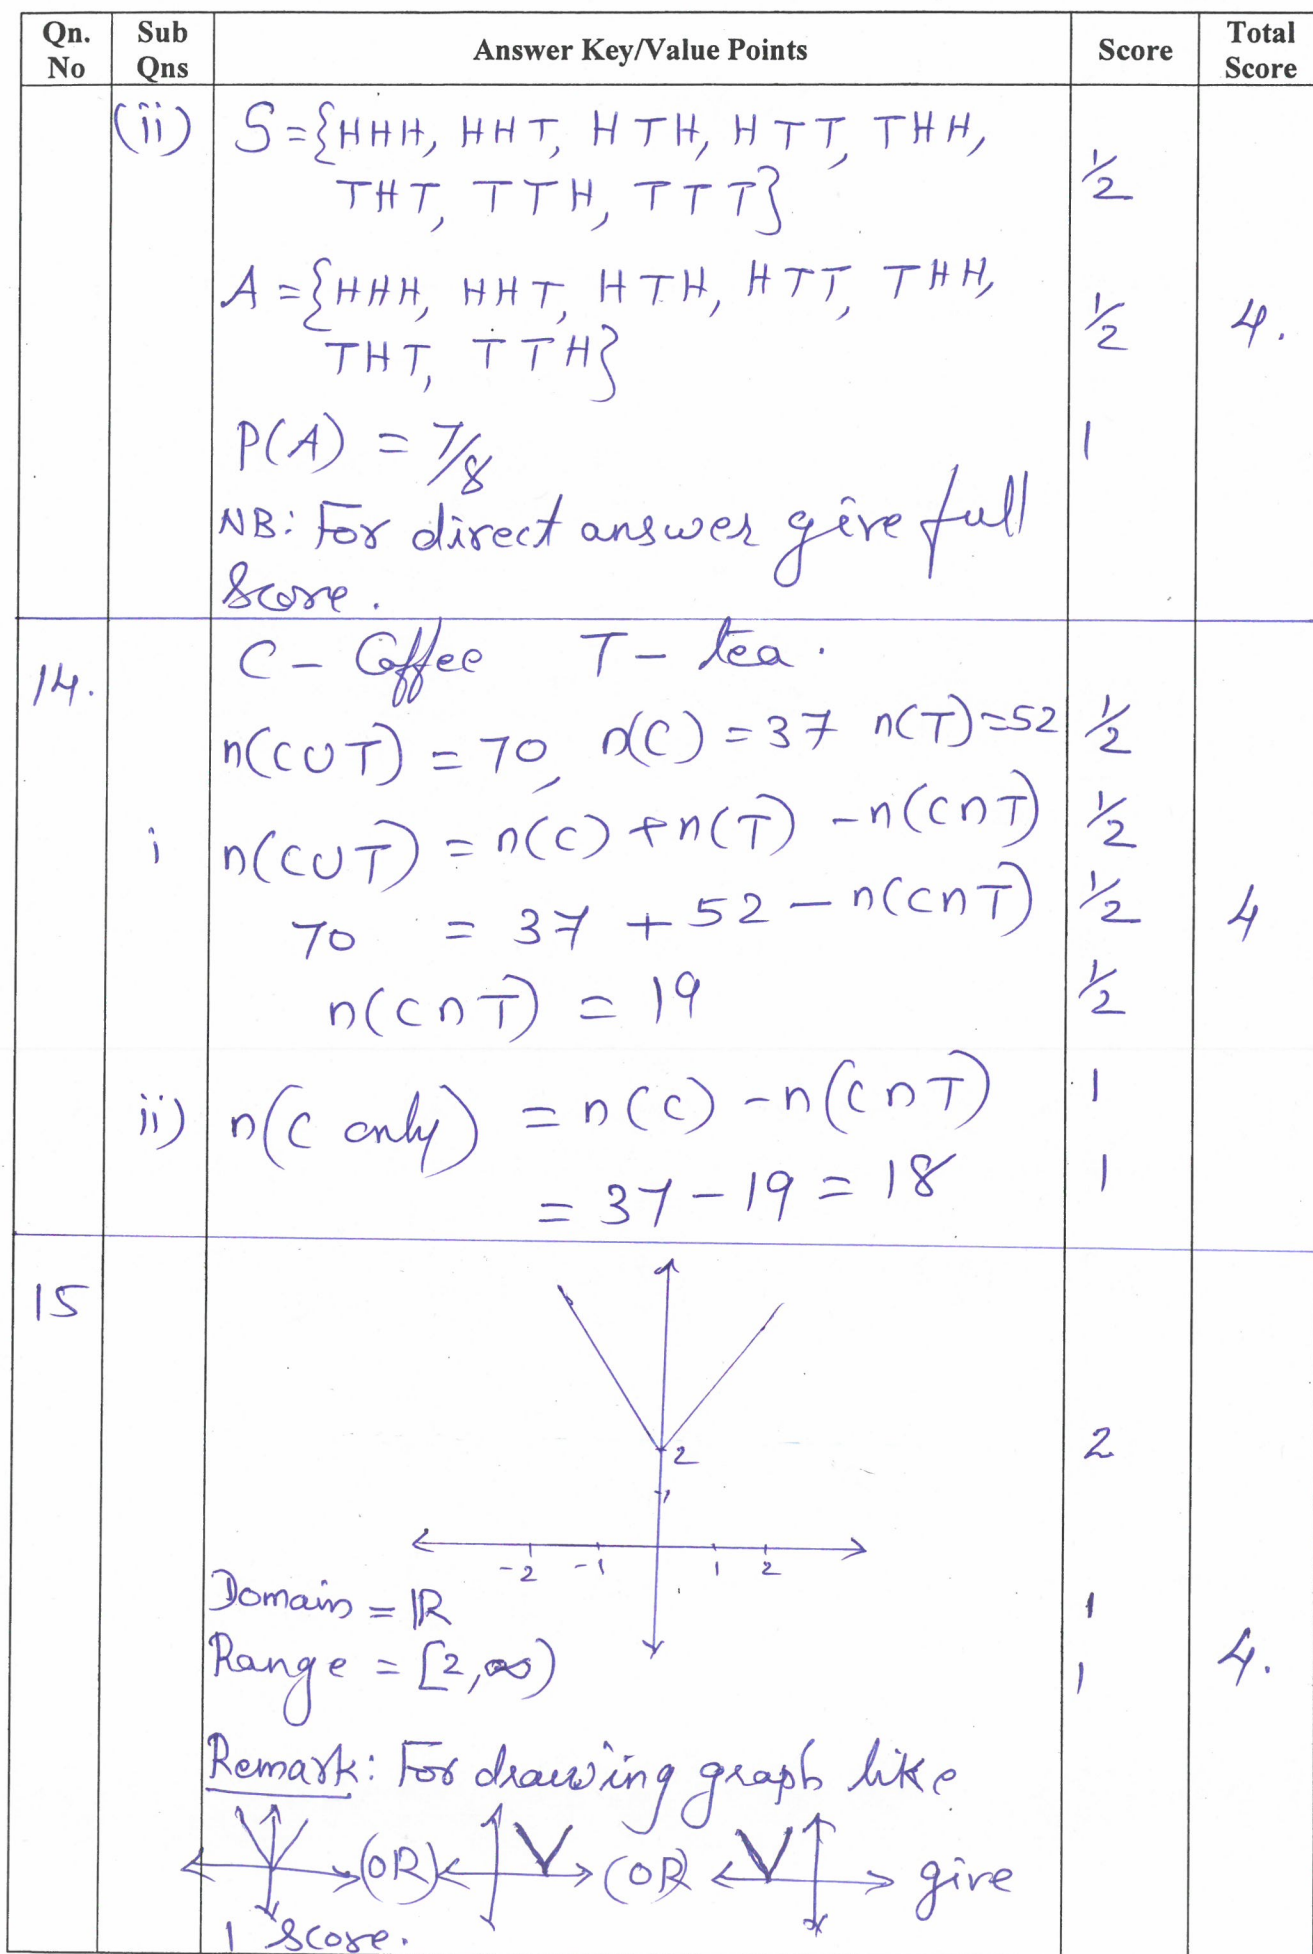 Qn. No Sub Qns Answer Key/Value Points Score Total Score
(ii) S = {HHH, HHT, HTH, HTT, THH,
THT, TTH, TTT} 1/2
A = {HHH, HHT, HTH, HTT, THH,
THT, TTH} 1/2 4.
P(A) = 7/8 1
NB: For direct answer give full
Score.
14. C - Coffee T - tea.
n(C∪T) = 70, n(C) = 37 n(T) = 52 1/2
i n(C∪T) = n(C) + n(T) - n(C∩T) 1/2
70 = 37 + 52 - n(C∩T) 1/2 4
n(C∩T) = 19 1/2
ii) n(C only) = n(C) - n(C∩T) 1
= 37 - 19 = 18 1
15
2 2
1
-2 -1 1 2
Domain = ℝ 1
Range = [2,∞) 1 4.
Remark: For drawing graph like
(OR) (OR) give
1 Score.